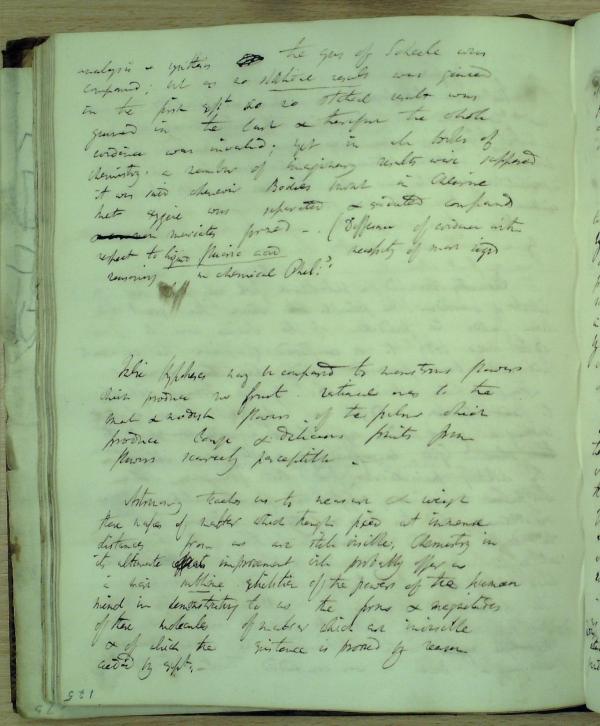 analysis & synthesis the gas of Scheele was
compound; but as no stated results was gained
in the first expt so no stated results was
gained in the last & therefore the whole
evidence was invalid; yet in the books of
chemistry a number of imaginary results were supposed
it was said
that oxygene was separated & oxidated compound
muriates formed - (Difference of evidence with
respect to liquor fluoric acid necessity of more rigid
reasoning in chemical Phil:
False Hypotheses may be compared to monstrous flowers
which produce no fruit. rational ones to the
small & modest flowers of the palm which
produce large & delicious fruits from
flowers scarcely perceptible -
Astronomy teaches us to measure & weigh
those masses of matter which though placed at immense
distances from us are still visible; Chemistry in
its ultimate improvement will probably offer us
a more sublime exhibition of the powers of the human
mind in demonstrating to us the forms & magnitudes
of those molecules of matter which are invisible
& of which the existence is proved by reason
aided by expts. -